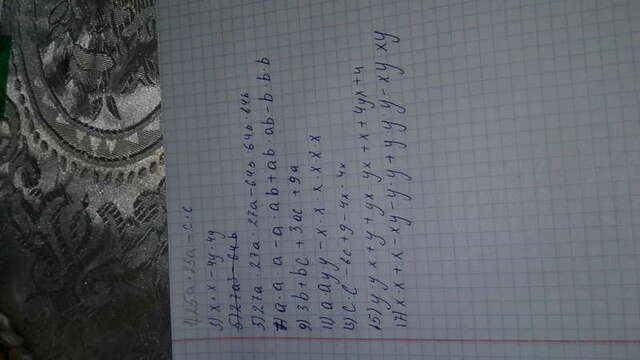 1) 25a · 25a - c · c
3) x · x - 4y · 4y
5) 27a³ - 64b
5) 27a · 27a · 27a - 64b · 64b · 64b
7) a · a · a - a · ab + ab · ab - b · b · b
9) 3b + bc + 3ac + 9a
11) a · a y y - x · x · x · x · x · x
13) c · c - bc + 9 - 4x · 4x
15) y · y x + y + yx · yx + x + 4yx + 4
17) x · x + x - xy - y · y + y y y - xy xy